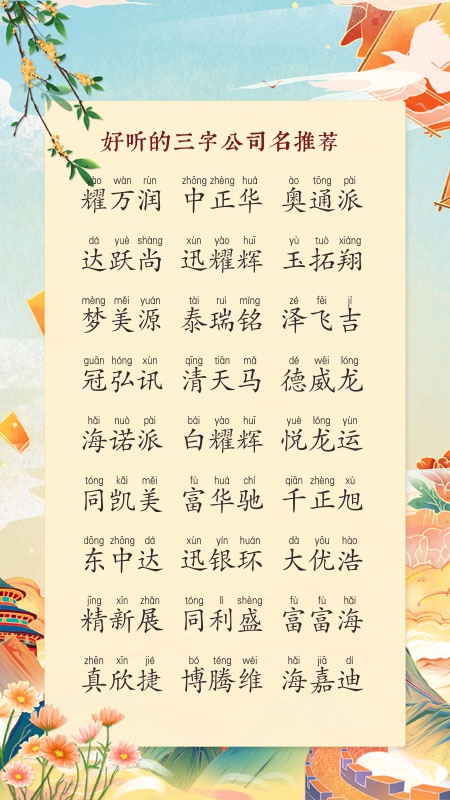 好听的三字公司名推荐
yào wàn rùn zhōng zhèng huá ào tōng pài
耀万润 中正华 奥通派
dá yuè shàng xùn yào huī yù tuò xiáng
达跃尚 迅耀辉 玉拓翔
mèng měi yuán tài ruì míng zé fēi jí
梦美源 泰瑞铭 泽飞吉
guān hóng xùn qīng tiān mǎ dé wēi lóng
冠弘讯 清天马 德威龙
hǎi nuò pài bái yào huī yuè lóng yùn
海诺派 白耀辉 悦龙运
tóng kǎi měi fù huá chí qiān zhèng xù
同凯美 富华驰 千正旭
dōng zhōng dá xùn yín huán dà yōu hào
东中达 迅银环 大优浩
jīng xīn zhǎn tóng lì shèng fù fù hǎi
精新展 同利盛 富富海
zhēn xīn jié bó téng wéi hǎi jiā dí
真欣捷 博腾维 海嘉迪